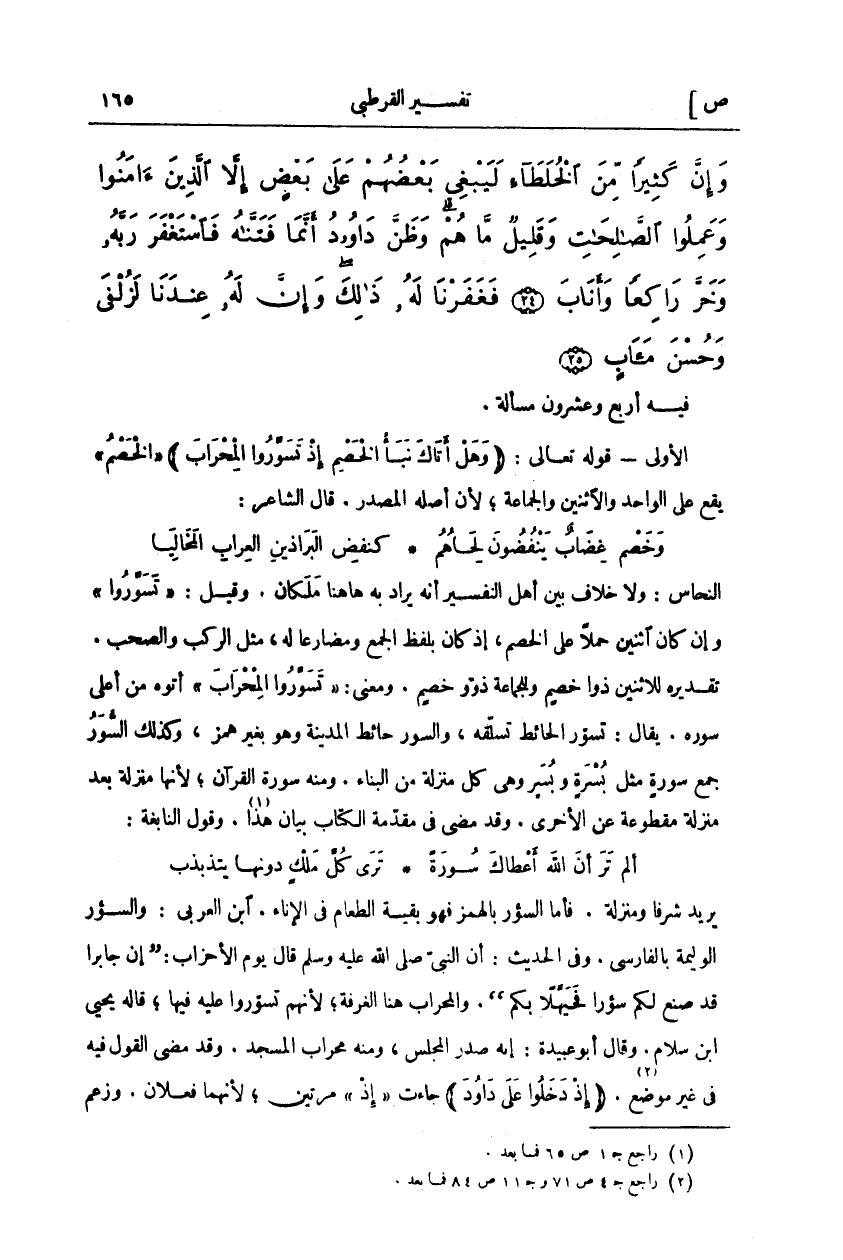 ص ] تفسير القرطبى ١٦٥
وَإِنَّ كَثِيرًا مِّنَ ٱلْخُلَطَآءِ لَيَبْغِى بَعْضُهُمْ عَلَىٰ بَعْضٍ إِلَّا ٱلَّذِينَ ءَامَنُوا
وَعَمِلُوا ٱلصَّـٰلِحَـٰتِ وَقَلِيلٌ مَّا هُمْ ۗ وَظَنَّ دَاوُۥدُ أَنَّمَا فَتَنَّـٰهُ فَٱسْتَغْفَرَ رَبَّهُۥ
وَخَرَّ رَاكِعًا وَأَنَابَ ﴿٢٤﴾ فَغَفَرْنَا لَهُۥ ذَٰلِكَ ۖ وَإِنَّ لَهُۥ عِندَنَا لَزُلْفَىٰ
وَحُسْنَ مَـَٔابٍ ﴿٢٥﴾
فيه أربع وعشرون مسألة .
الأولى — قوله تعالى : ﴿ وَهَلْ أَتَاكَ نَبَأُ الْخَصْمِ إِذْ تَسَوَّرُوا الْمِحْرَابَ ﴾ «الْخَصْمُ»
يقع على الواحد والآثنين والجماعة ؛ لأن أصله المصدر . قال الشاعر :
وَخَصْمٍ غِضَابٌ يَنْفُضُونَ لِحَاهُمُ * كنفضِ البَرَاذينِ العِرابِ الْمَخَالِيَا
النحاس : ولا خلاف بين أهل التفسير أنه يراد به هاهنا مَلَكان . وقيل : « تَسَوَّرُوا »
وإن كان آثنين حملًا على الخصم، إذ كان بلفظ الجمع ومضارعا له، مثل الركب والصحب .
تقديره للاثنين ذوا خصمٍ وللجماعة ذوو خصمٍ . ومعنى: « تَسَوَّرُوا الْمِحْرَابَ » أتوه من أعلى
سوره . يقال : تسوّر الحائط تسلّقه ، والسور حائط المدينة وهو بغير همز ، وكذلك السُّوَرُ
جمع سورةٍ مثل بُسْرَةٍ وبُسَرٍ وهى كل منزلة من البناء . ومنه سورة القرآن ؛ لأنها منزلة بعد
منزلة مقطوعة عن الأخرى . وقد مضى فى مقدّمة الكتاب بيان هٰذا (١) . وقول النابغة :
ألم تَرَ أنّ الله أَعْطاكَ سُورَةً * تَرَى كُلَّ مَلْكٍ دونها يتذبذب
يريد شرفا ومنزلة . فأما السؤر بالهمز فهو بقية الطعام فى الإناء . آبن العربى : والسؤر
الوليمة بالفارسى . وفى الحديث : أن النبىّ صلى الله عليه وسلم قال يوم الأحزاب: ”إن جابرا
قد صنع لكم سؤرا فَحَيَّهَلًا بكم“ . والمحراب هنا الغرفة؛ لأنهم تسوّروا عليه فيها ؛ قاله يحيى
ابن سلام. وقال أبو عبيدة : إنه صدر المجلس ، ومنه محراب المسجد . وقد مضى القول فيه
فى غير موضع (٢) . ﴿ إِذْ دَخَلُوا عَلَى دَاوُدَ ﴾ جاءت « إِذْ » مرتين ؛ لأنهما فعلان . وزعم
(١) راجع جـ ١ ص ٦٥ فما بعد .
(٢) راجع جـ ٤ ص ٧١ و جـ ١١ ص ٨٤ فما بعد .